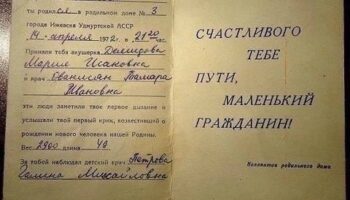 ты родился в родильном доме № 3
города Ижевска Удмуртской АССР
14 апреля 1972 г. в 21 20 час
Приняли тебя акушерка Демидова
Мария Исаковна
и врач Ованисян Тамара
Ивановна
эти люди заметили твое первое дыхание и
услышали твой первый крик, возвестивший о
рождении нового человека нашей Родины.
Вес 2900 длина 49
За тобой наблюдал детский врач Петрова
Галина Михайловна
СЧАСТЛИВОГО
ТЕБЕ
ПУТИ,
МАЛЕНЬКИЙ
ГРАЖДАНИН!
Коллектив родильного дома